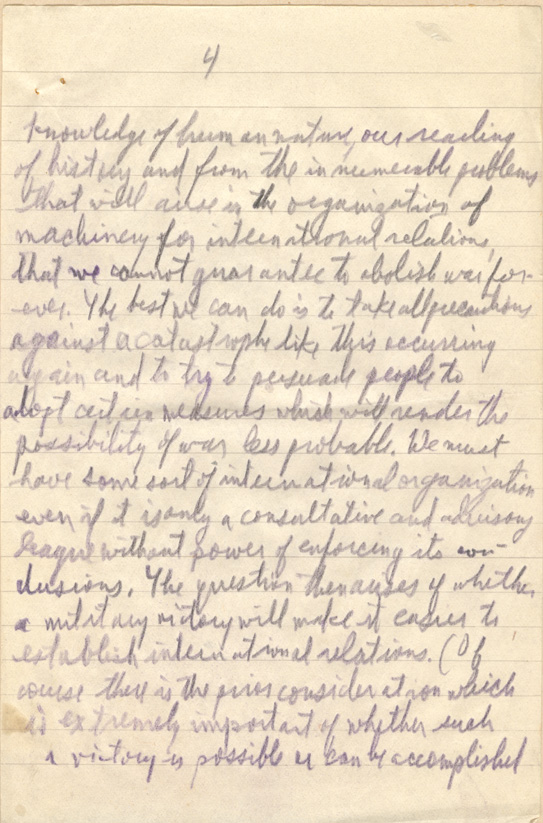 4
knowledge of human nature, our reading
of history and from the innumerable problems
that will arise in the organization of
machinery for international relations,
that we cannot guarantee to abolish war for-
ever. The best we can do is to take all precautions
against a catastrophe like this occurring
again and to try to persuade people to
adopt certain measures which will render the
possibility of war less probable. We must
have some sort of international organization
even if it is only a consultative and advisory
league without power of enforcing its con-
clusions. The question then arises of whether
a military victory will make it easier to
establish international relations. (Of
course there is the prior consideration which
is extremely important of whether such
a victory is possible or can be accomplished